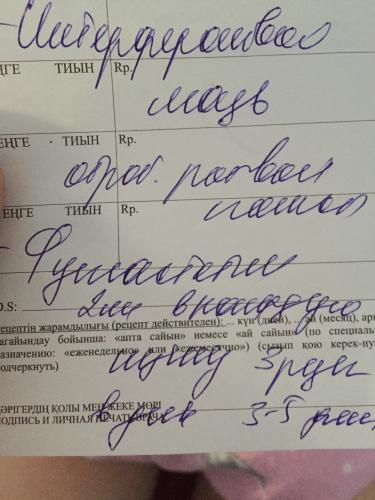 -Интерфероновая
ЕҢГЕ ТИЫН Rp.
мазь
ЕҢГЕ · ТИЫН Rp.
обраб. ротовой
ЕҢГЕ ТИЫН Rp.
полост
- Фукастатин
D.S:
2мл в каждую
рецептің жарамдылығы (рецепт действителен): ... күн (дней), ... ай (месяц),
тағайындау бойынша: «апта сайын» немесе «ай сайын» (по специаль
назначению: «еженедельно» или «ежемесячно») (сызып қою керек-нуж
подчеркнуть)
щеку 3 р
ДӘРІГЕРДІҢ ҚОЛЫ МЕН ЖЕКЕ МӨРІ
ПОДПИСЬ И ЛИЧНАЯ ПЕЧАТЬ ВРАЧА
3-5 дн